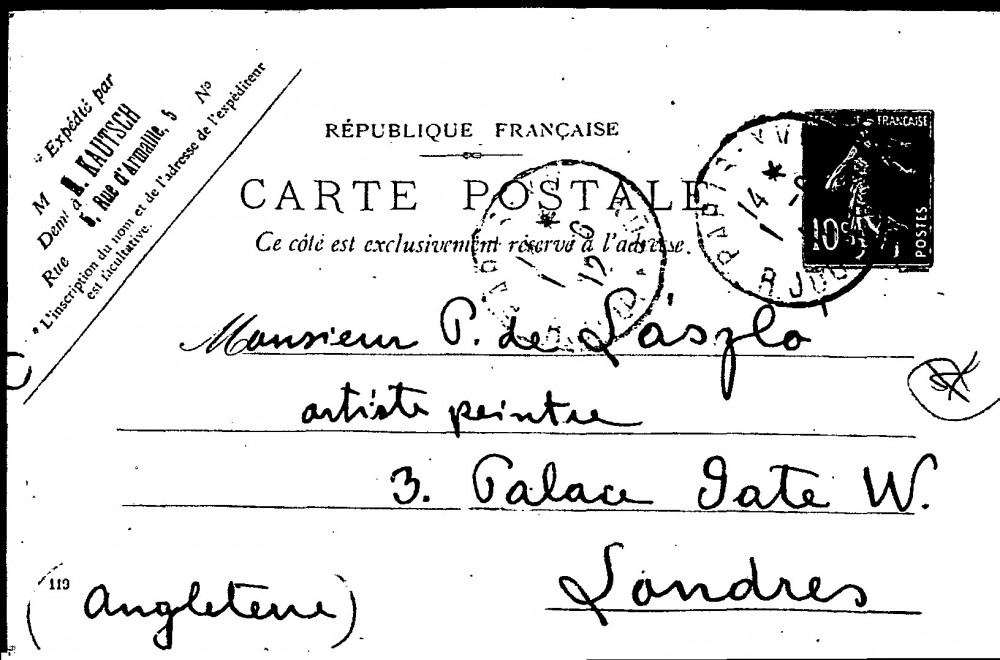 * Expédié par
M A. KAUTSCH
Demt à 5, Rue d'Armaille, 5
Rue Nº
* L'inscription du nom et de l'adresse de l'expéditeur
est facultative.
RÉPUBLIQUE FRANÇAISE
CARTE POSTALE
Ce côté est exclusivement réservé à l'adresse.
FRANÇAISE
10c
POSTES
PARIS
14
12
Monsieur P. de László
artiste peintre
3. Palace Gate W.
Londres
119
(Angleterre)